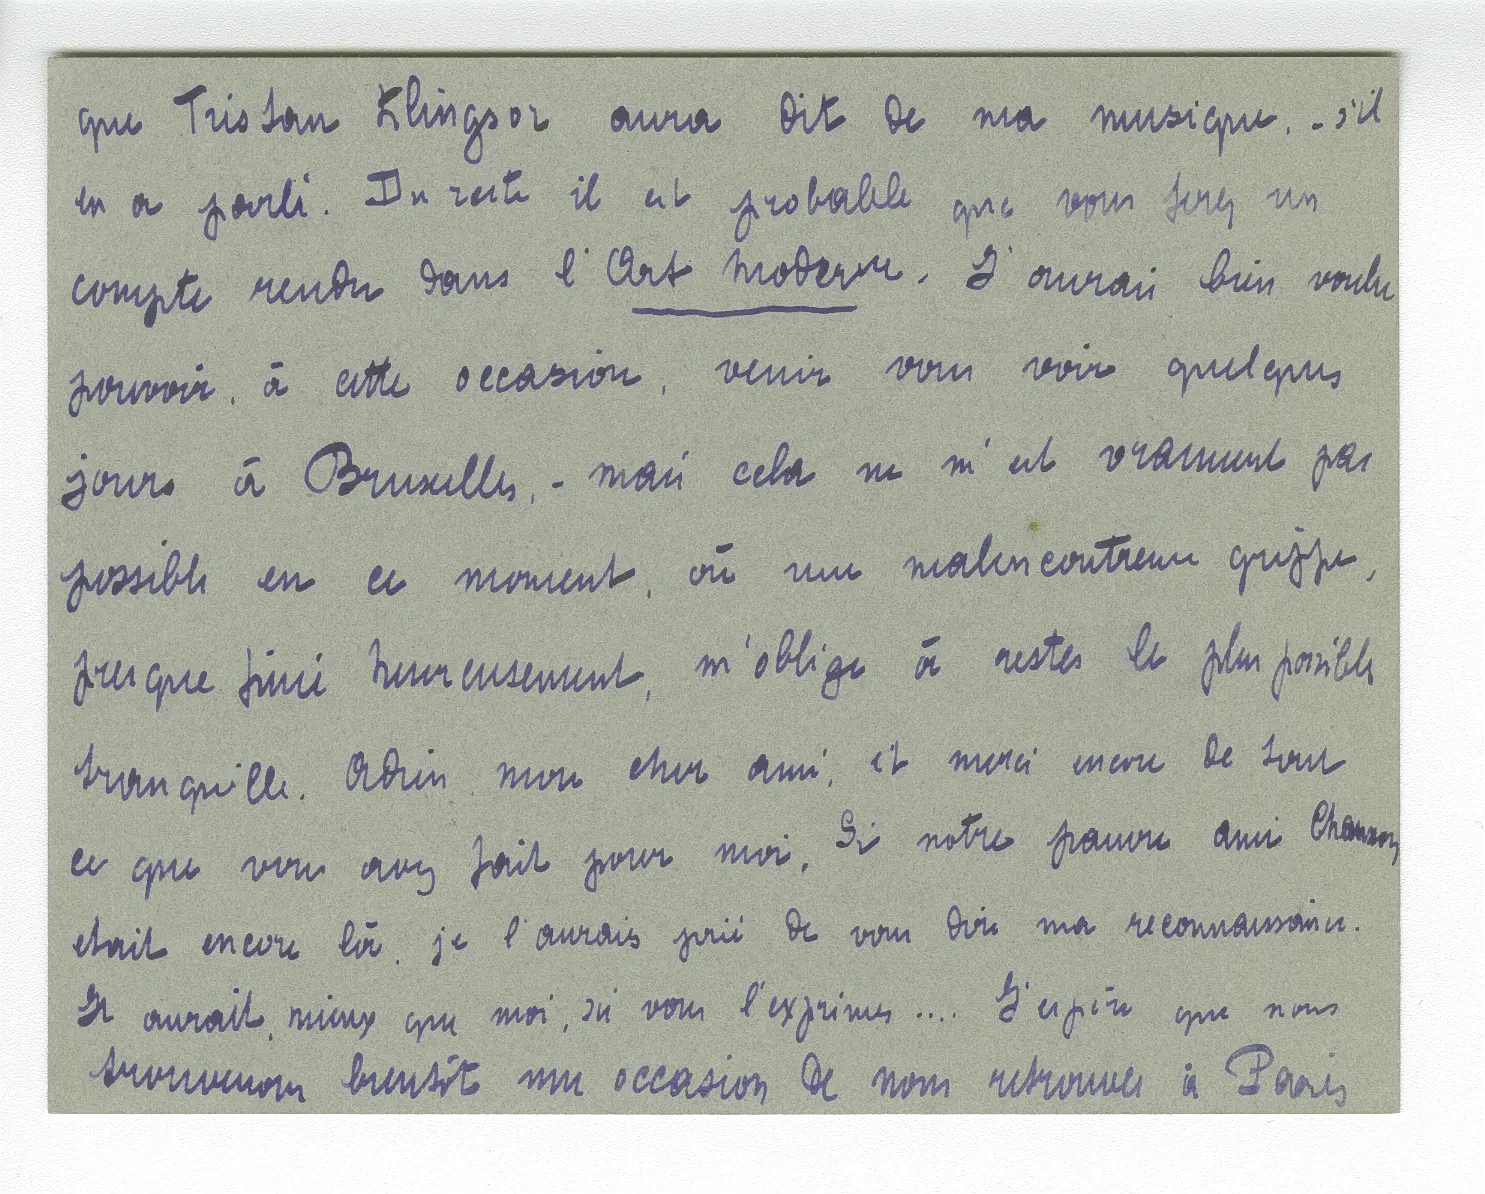 que Tristan Klingsor aura dit de ma musique. - s'il
en a parlé. Du reste il est probable que vous ferez un
compte rendu dans l'Art Moderne. J'aurais bien voulu
pouvoir, à cette occasion, venir vous voir quelques
jours à Bruxelles, - mais cela ne m'est vraiment pas
possible en ce moment, où une malencontreuse grippe,
presque finie heureusement, m'oblige à rester le plus possible
tranquille. Adieu mon cher ami, et merci encore de tout
ce que vous avez fait pour moi. Si notre pauvre ami Chausson
était encore là, je l'aurais prié de vous dire ma reconnaissance.
Il aurait, mieux que moi, su vous l'exprimer.... J'espère que nous
trouverons bientôt une occasion de nous retrouver à Paris